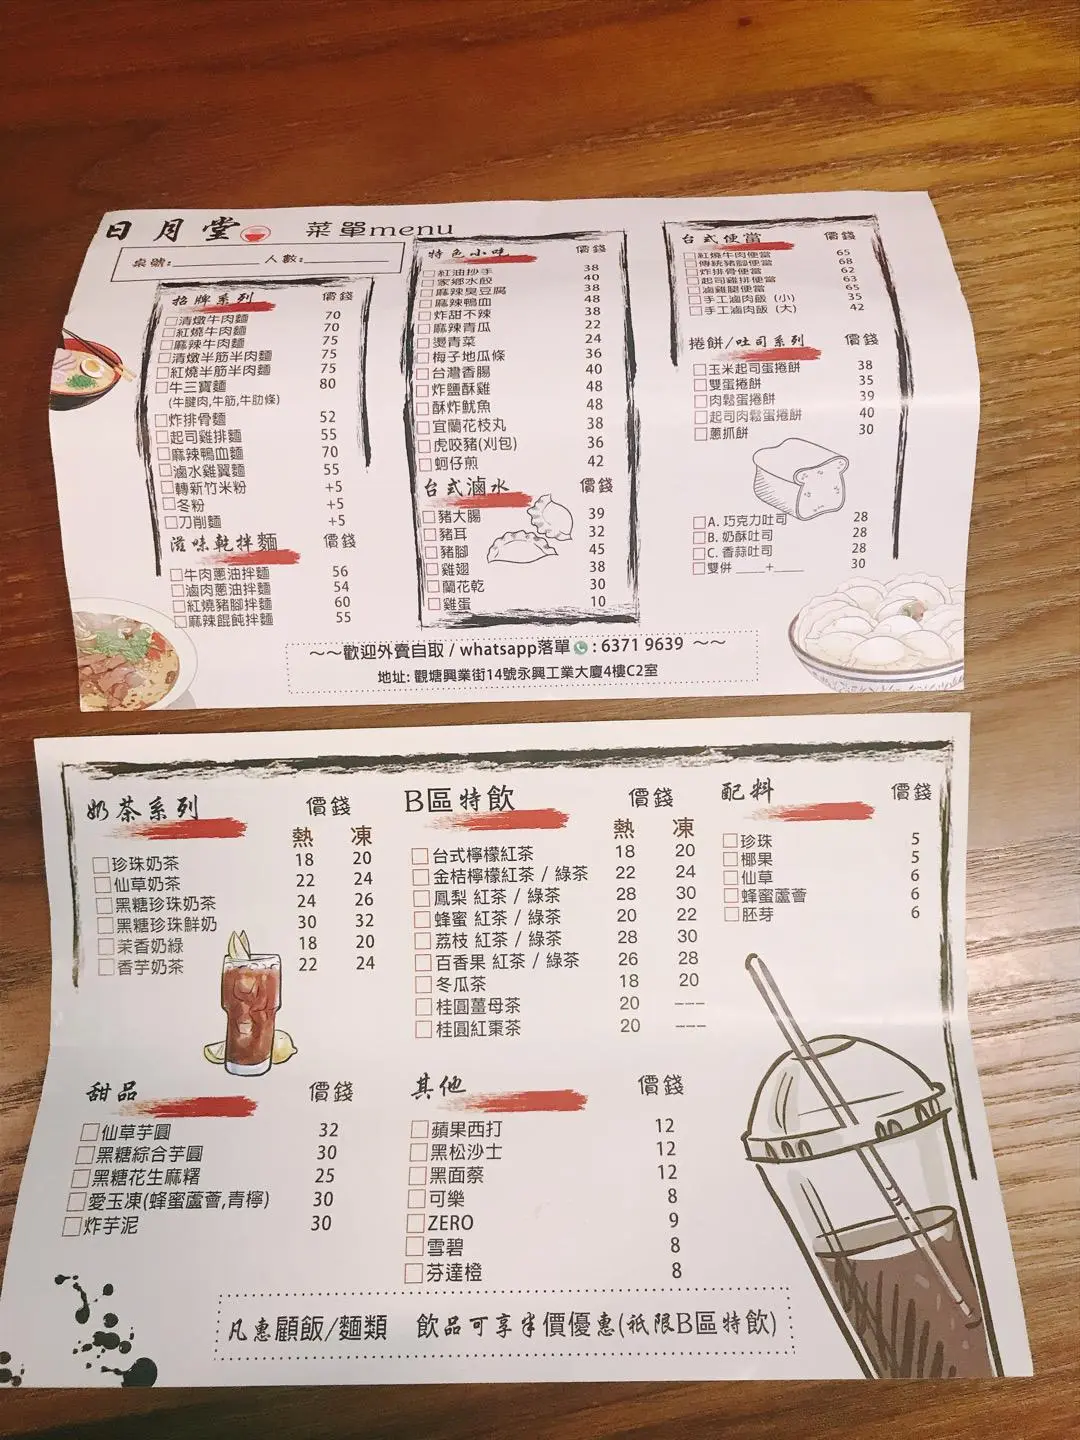 日月堂 菜單menu
桌號:__________ 人數:__________
招牌系列 價錢
清燉牛肉麵 70
紅燒牛肉麵 70
麻辣牛肉麵 75
清燉半筋半肉麵 75
紅燒半筋半肉麵 75
牛三寶麵 80
(牛腱肉,牛筋,牛肋條)
炸排骨麵 52
起司雞排麵 55
麻辣鴨血麵 70
滷水雞翼麵 55
轉新竹米粉 +5
冬粉 +5
刀削麵 +5
滋味乾拌麵 價錢
牛肉蔥油拌麵 56
滷肉蔥油拌麵 54
紅燒豬腳拌麵 60
麻辣餛飩拌麵 55
特色小吃 價錢
紅油抄手 38
家鄉水餃 40
麻辣臭豆腐 38
麻辣鴨血 48
炸甜不辣 38
麻辣青瓜 22
燙青菜 24
梅子地瓜條 36
台灣香腸 40
炸鹽酥雞 48
酥炸魷魚 48
宜蘭花枝丸 38
虎咬豬(刈包) 36
蚵仔煎 42
台式滷水 價錢
豬大腸 39
豬耳 32
豬腳 45
雞翅 38
蘭花乾 30
雞蛋 10
台式便當 價錢
紅燒牛肉便當 65
傳統豬腳便當 68
炸排骨便當 62
起司雞排便當 63
滷雞腿便當 65
手工滷肉飯 (小) 35
手工滷肉飯 (大) 42
捲餅/吐司系列 價錢
玉米起司蛋捲餅 38
雙蛋捲餅 35
肉鬆蛋捲餅 39
起司肉鬆蛋捲餅 40
蔥抓餅 30
A. 巧克力吐司 28
B. 奶酥吐司 28
C. 香蒜吐司 28
雙併 ____+____ 30
～～歡迎外賣自取 / whatsapp落單 : 6371 9639 ～～
地址: 觀塘興業街14號永興工業大廈4樓C2室
奶茶系列 價錢
熱 凍
珍珠奶茶 18 20
仙草奶茶 22 24
黑糖珍珠奶茶 24 26
黑糖珍珠鮮奶 30 32
茉香奶綠 18 20
香芋奶茶 22 24
B區特飲 價錢
熱 凍
台式檸檬紅茶 18 20
金桔檸檬紅茶 / 綠茶 22 24
鳳梨 紅茶 / 綠茶 28 30
蜂蜜 紅茶 / 綠茶 20 22
荔枝 紅茶 / 綠茶 28 30
百香果 紅茶 / 綠茶 26 28
冬瓜茶 18 20
桂圓薑母茶 20 ----
桂圓紅棗茶 20 ----
配料 價錢
珍珠 5
椰果 5
仙草 6
蜂蜜蘆薈 6
胚芽 6
甜品 價錢
仙草芋圓 32
黑糖綜合芋圓 30
黑糖花生麻糬 25
愛玉凍(蜂蜜蘆薈,青檸) 30
炸芋泥 30
其他 價錢
蘋果西打 12
黑松沙士 12
黑面蔡 12
可樂 8
ZERO 9
雪碧 8
芬達橙 8
凡惠顧飯/麵類 飲品可享半價優惠(祗限B區特飲)